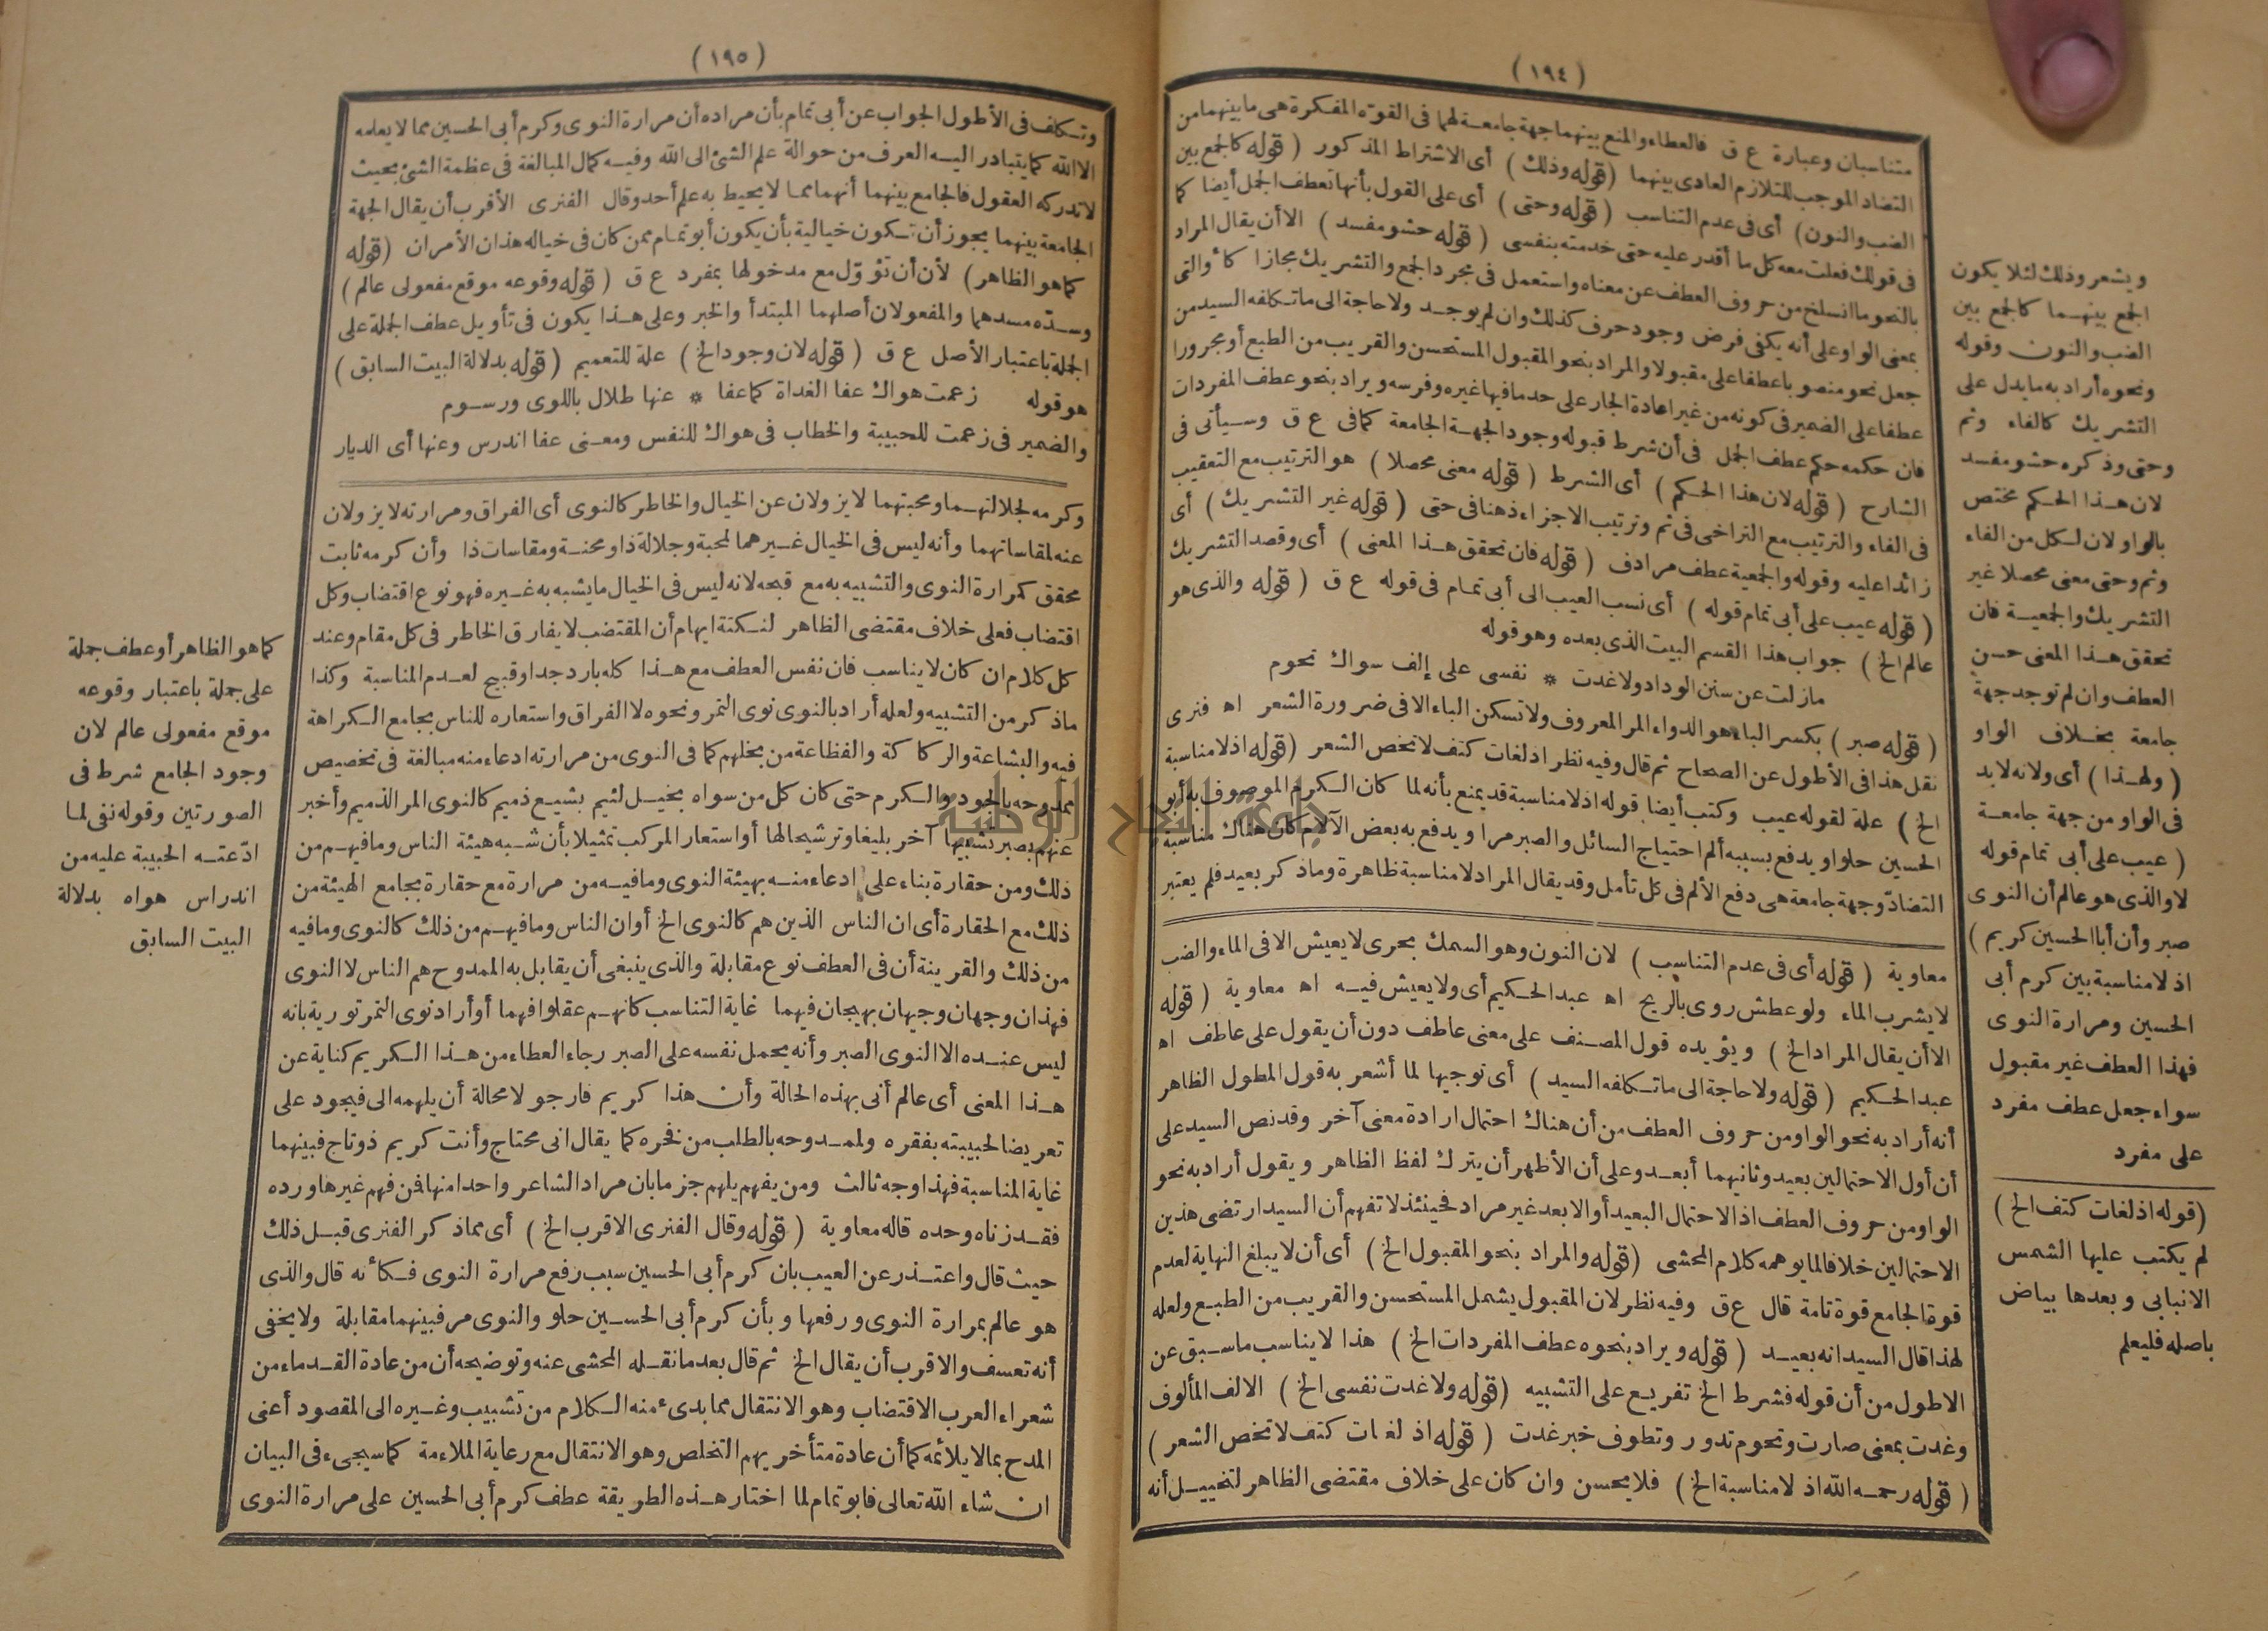 (١٩٤)
متناسبان وعبارة ع ق فالعطاء والمنع بينهما جهة جامعة لهما فى القوّة المفكرة هى ما بينهما من
التضاد الموجب للتلازم العادى بينهما (قوله وذلك) أى الاشتراط المذكور (قوله كالجمع بين
الضب والنون) أى فى عدم التناسب (قوله وحتى) أى على القول بأنها تعطف الجمل أيضا كما
فى قولك فعلت معه كل ما أقدر عليه حتى خدمته بنفسى (قوله حشو مفسد) الا أن يقال المراد
بالنحو ما انسلخ من حروف العطف عن معناه واستعمل فى مجرد الجمع والتشريك مجازا كأو التى
بمعنى الواو على أنه يكفى فرض وجود حرف كذلك وان لم يوجد ولا حاجة الى ما تكلفه السيد من
جعل نحو منصوبا عطفا على مقبولا والمراد بنحو المقبول المستحسن والقريب من الطبع أو مجرورا
عطفا على الضمير فى كونه من غير اعادة الجار على حد ما فيها غيره وفرسه ويراد بنحو عطف المفردات
فان حكمه حكم عطف الجمل فى أن شرط قبوله وجود الجهة الجامعة كما فى ع ق وسيأتى فى
الشارح (قوله لان هذا الحكم) أى الشرط (قوله معنى محصلا) هو الترتيب مع التعقيب
فى الفاء والترتيب مع التراخى فى ثم وترتيب الاجزاء ذهنا فى حتى (قوله غير التشريك) أى
زائدا عليه وقوله والجمعية عطف مرادف (قوله فان تحقق هذا المعنى) أى وقصد التشريك
(قوله عيب على أبى تمام قوله) أى نسب العيب الى أبى تمام فى قوله ع ق (قوله والذى هو
عالم الخ) جواب هذا القسم البيت الذى بعده وهو قوله
مازلت عن سنن الوداد ولا غدت * نفسى على إلف سواك تحوم
(قوله صبر) بكسر الباء هو الدواء المر المعروف ولا تسكن الباء الا فى ضرورة الشعر اه فنرى
نقل هذا فى الأطول عن الصحاح ثم قال وفيه نظر اذ لغات كتف لا تخص الشعر (قوله اذ لا مناسبة
الخ) علة لقوله عيب وكتب أيضا قوله اذ لا مناسبة قد يمنع بأنه لما كان الكرم الموصوف به أبو
الحسين حلوا ويدفع بسببه ألم احتياج السائل والصبر مرا ويدفع به بعض الآلام كان هناك مناسبة
التضادّ وجهة جامعة هى دفع الألم فى كل تأمل وقد يقال المراد لا مناسبة ظاهرة وما ذكر بعيد فلم يعتبر
معاوية (قوله أى فى عدم التناسب) لان النون وهو السمك بحرى لا يعيش الا فى الماء والضب
لا يشرب الماء ولو عطش روى بالريح اه عبد الحكيم أى ولا يعيش فيه اه معاوية (قوله
الا أن يقال المراد الخ) ويؤيده قول المصنف على معنى عاطف دون أن يقول على عاطف اه
عبد الحكيم (قوله ولا حاجة الى ما تكلفه السيد) أى توجيها لما أشعر به قول المطول الظاهر
أنه أراد به نحو الواو من حروف العطف من أن هناك احتمال ارادة معنى آخر وقد نص السيد على
أن أول الاحتمالين بعيد وثانيهما أبعد وعلى أن الأظهر أن يترك لفظ الظاهر ويقول أراد به نحو
الواو من حروف العطف اذ الاحتمال البعيد أو الابعد غير مراد فحينئذ لا تفهم أن السيد ارتضى هذين
الاحتمالين خلافا لما يوهمه كلام المحشى (قوله والمراد بنحو المقبول الخ) أى أن لا يبلغ النهاية لعدم
قوة الجامع قوة تامة قال ع ق وفيه نظر لان المقبول يشمل المستحسن والقريب من الطبع ولعله
لهذا قال السيد انه بعيد (قوله ويراد بنحوه عطف المفردات الخ) هذا لا يناسب ما سبق عن
الاطول من أن قوله فشرط الخ تفريع على التشبيه (قوله ولا غدت نفسى الخ) الالف المألوف
وغدت بمعنى صارت وتحوم تدور وتطوف خبر غدت (قوله اذ لغات كتف لا تخص الشعر)
(قوله رحمه الله اذ لا مناسبة الخ) فلا يحسن وان كان على خلاف مقتضى الظاهر لتخييل أنه
ويشعر وذلك لئلا يكون
الجمع بينهما كالجمع بين
الضب والنون وقوله
ونحوه أراد به ما يدل على
التشريك كالفاء وثم
وحتى وذكره حشو مفسد
لان هذا الحكم مختص
بالواو لان لكل من الفاء
وثم وحتى معنى محصلا غير
التشريك والجمعية فان
تحقق هذا المعنى حسن
العطف وان لم توجد جهة
جامعة بخلاف الواو
(ولهذا) أى ولانه لابد
فى الواو من جهة جامعة
(عيب على أبى تمام قوله
لا والذى هو عالم أن النوى
صبر وأن أبا الحسين كريم)
اذ لا مناسبة بين كرم أبى
الحسين ومرارة النوى
فهذا العطف غير مقبول
سواء جعل عطف مفرد
على مفرد
(قوله اذ لغات كتف الخ)
لم يكتب عليها الشمس
الانبابى وبعدها بياض
باصله فليعلم
(١٩٥)
وتكلف فى الأطول الجواب عن أبى تمام بأن مراده أن مرارة النوى وكرم أبى الحسين مما لا يعلمه
الا الله كما يتبادر اليه العرف من حوالة علم الشئ الى الله وفيه كمال المبالغة فى عظمة الشئ بحيث
لا تدركه العقول فالجامع بينهما أنهما مما لا يحيط به علم أحد وقال الفنرى الأقرب أن يقال الجهة
الجامعة بينهما يجوز أن تكون خيالية بأن يكون أبو تمام ممن كان فى خياله هذان الأمران (قوله
كما هو الظاهر) لأن أن تؤوّل مع مدخولها بمفرد ع ق (قوله وقوعه موقع مفعولى عالم)
وسدّه مسدهما والمفعولان أصلهما المبتدأ والخبر وعلى هذا يكون فى تأويل عطف الجملة على
الجملة باعتبار الأصل ع ق (قوله لان وجود الخ) علة للتعميم (قوله بدلالة البيت السابق)
هو قوله زعمت هواك عفا الغداة كما عفا * عنها طلال باللوى ورسوم
والضمير فى زعمت للحبيبة والخطاب فى هواك للنفس ومعنى عفا اندرس وعنها أى الديار
وكرمه لجلالتهما ومحبتهما لا يزولان عن الخيال والخاطر كالنوى أى الفراق ومرارته لا يزولان
عنه لمقاساتهما وأنه ليس فى الخيال غيرهما لمحبة وجلالة ذا ومحنة ومقاسات ذا وأن كرمه ثابت
محقق كمرارة النوى والتشبيه به مع قبحه لانه ليس فى الخيال ما يشبه به غيره فهو نوع اقتضاب وكل
اقتضاب فعلى خلاف مقتضى الظاهر لنكتة ايهام أن المقتضب لا يفارق الخاطر فى كل مقام وعند
كل كلام ان كان لا يناسب فان نفس العطف مع هذا كله بارد جدا وقبيح لعدم المناسبة وكذا
ما ذكر من التشبيه ولعله أراد بالنوى نوى التمر ونحوه لا الفراق واستعاره للناس بجامع الكراهة
فيه والبشاعة والركاكة والفظاعة من بخلهم كما فى النوى من مرارته ادعاء منه مبالغة فى تخصيص
ممدوحه بالجود والكرم حتى كان كل من سواه بخيل لئيم بشيع ذميم كالنوى المر الذميم وأخبر
عنهم بصبر تشبيها آخر بليغا وترشيحا لها أو استعار المركب تمثيلا بأن شبه هيئة الناس وما فيهم من
ذلك ومن حقارة بناء على ادعاء منه بهيئة النوى وما فيه من مرارة مع حقارة بجامع الهيئة من
ذلك مع الحقارة أى ان الناس الذين هم كالنوى الخ أو ان الناس وما فيهم من ذلك كالنوى وما فيه
من ذلك والقرينة أن فى العطف نوع مقابلة والذى ينبغى أن يقابل به الممدوح هم الناس لا النوى
فهذان وجهان وجيهان بهيجان فيهما غاية التناسب كانهم عقلوا فهما أو أراد نوى التمر تورية بانه
ليس عنده الا النوى الصبر وأنه يحمل نفسه على الصبر رجاء العطاء من هذا الكريم كناية عن
هذا المعنى أى عالم أنى بهذه الحالة وأن هذا كريم فارجو لا محالة أن يلهمه الى فيجود على
تعريضا لحبيبته بفقره ولممدوحه بالطلب من فخره كما يقال انى محتاج وأنت كريم ذو تاج فبينهما
غاية المناسبة فهذا وجه ثالث ومن يفهم يلهم جزما بان مراد الشاعر واحد منها فمن فهم غيرها ورده
فقد زناه وحده قاله معاوية (قوله وقال الفنرى الاقرب الخ) أى مما ذكر الفنرى قبل ذلك
حيث قال واعتذر عن العيب بان كرم أبى الحسين سبب رفع مرارة النوى فكأنه قال والذى
هو عالم بمرارة النوى ورفعها وبأن كرم أبى الحسين حلو والنوى مر فبينهما مقابلة ولا يخفى
أنه تعسف والاقرب أن يقال الخ ثم قال بعد ما نقله المحشى عنه وتوضيحه أن من عادة القدماء من
شعراء العرب الاقتضاب وهو الانتقال مما بدئ منه الكلام من تشبيب وغيره الى المقصود أعنى
المدح بما لا يلائمه كما أن عادة متأخريهم التخلص وهو الانتقال مع رعاية الملاءمة كما سيجىء فى البيان
ان شاء الله تعالى فابو تمام لما اختار هذه الطريقة عطف كرم أبى الحسين على مرارة النوى
كما هو الظاهر أو عطف جملة
على جملة باعتبار وقوعه
موقع مفعولى عالم لان
وجود الجامع شرط فى
الصورتين وقوله نفى لما
ادّعته الحبيبة عليه من
اندراس هواه بدلالة
البيت السابق
جامعة النجاح الوطنية